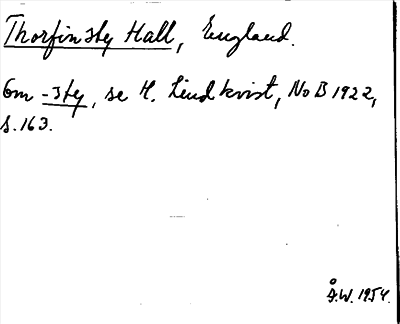 Thorfinsty Hall, England.
Om -sty, se H. Lindkvist, NoB 1922,
s. 163.
Å.W. 1954.